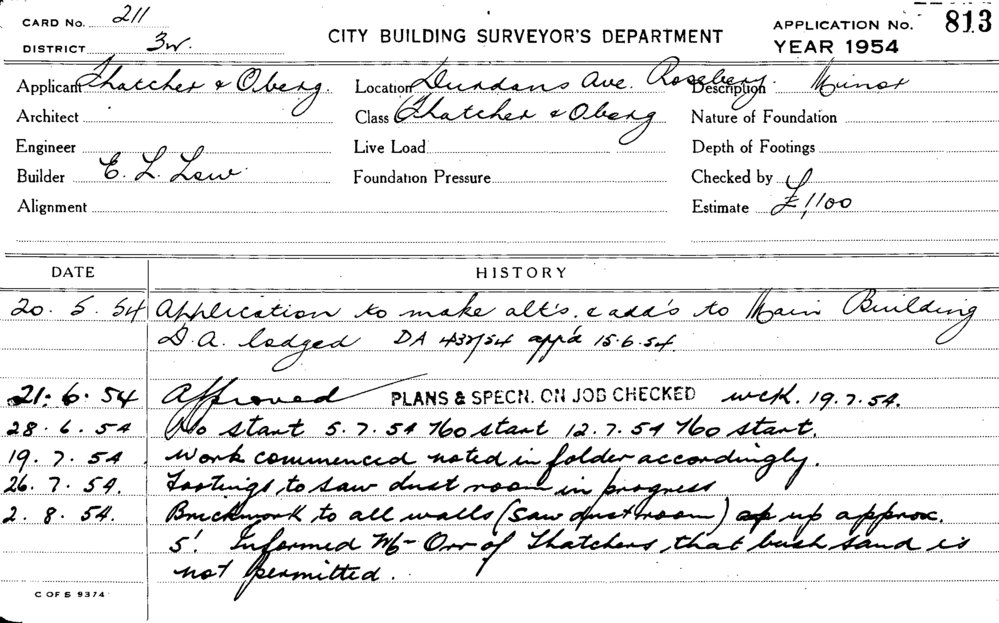 CARD No. 211
DISTRICT 3w.
CITY BUILDING SURVEYOR'S DEPARTMENT
APPLICATION No. 813
YEAR 1954
Applicant Thatcher & Oberg. Location Dundans Ave. Rosebery. Description Minor
Architect Class Thatcher & Oberg Nature of Foundation
Engineer Live Load Depth of Footings
Builder E. L. Law Foundation Pressure Checked by
Alignment Estimate £1,100
DATE HISTORY
20. 5. 54 Application to make alt's. & add's to Main Building
D.A. lodged DA 437/54 app'd 15.6.54.
21. 6. 54 Approved PLANS & SPECN. ON JOB CHECKED wck. 19.7.54.
28. 6. 54 No start 5.7.54 No start 12.7.54 No start.
19. 7. 54 Work commenced noted in folder accordingly.
26. 7. 54. Footings to saw dust room in progress
2. 8. 54. Brickwork to all walls (saw dust room) up approx.
5'. Informed Mr Orr of Thatchers, that bush sand is
not permitted.
C OF S 9374